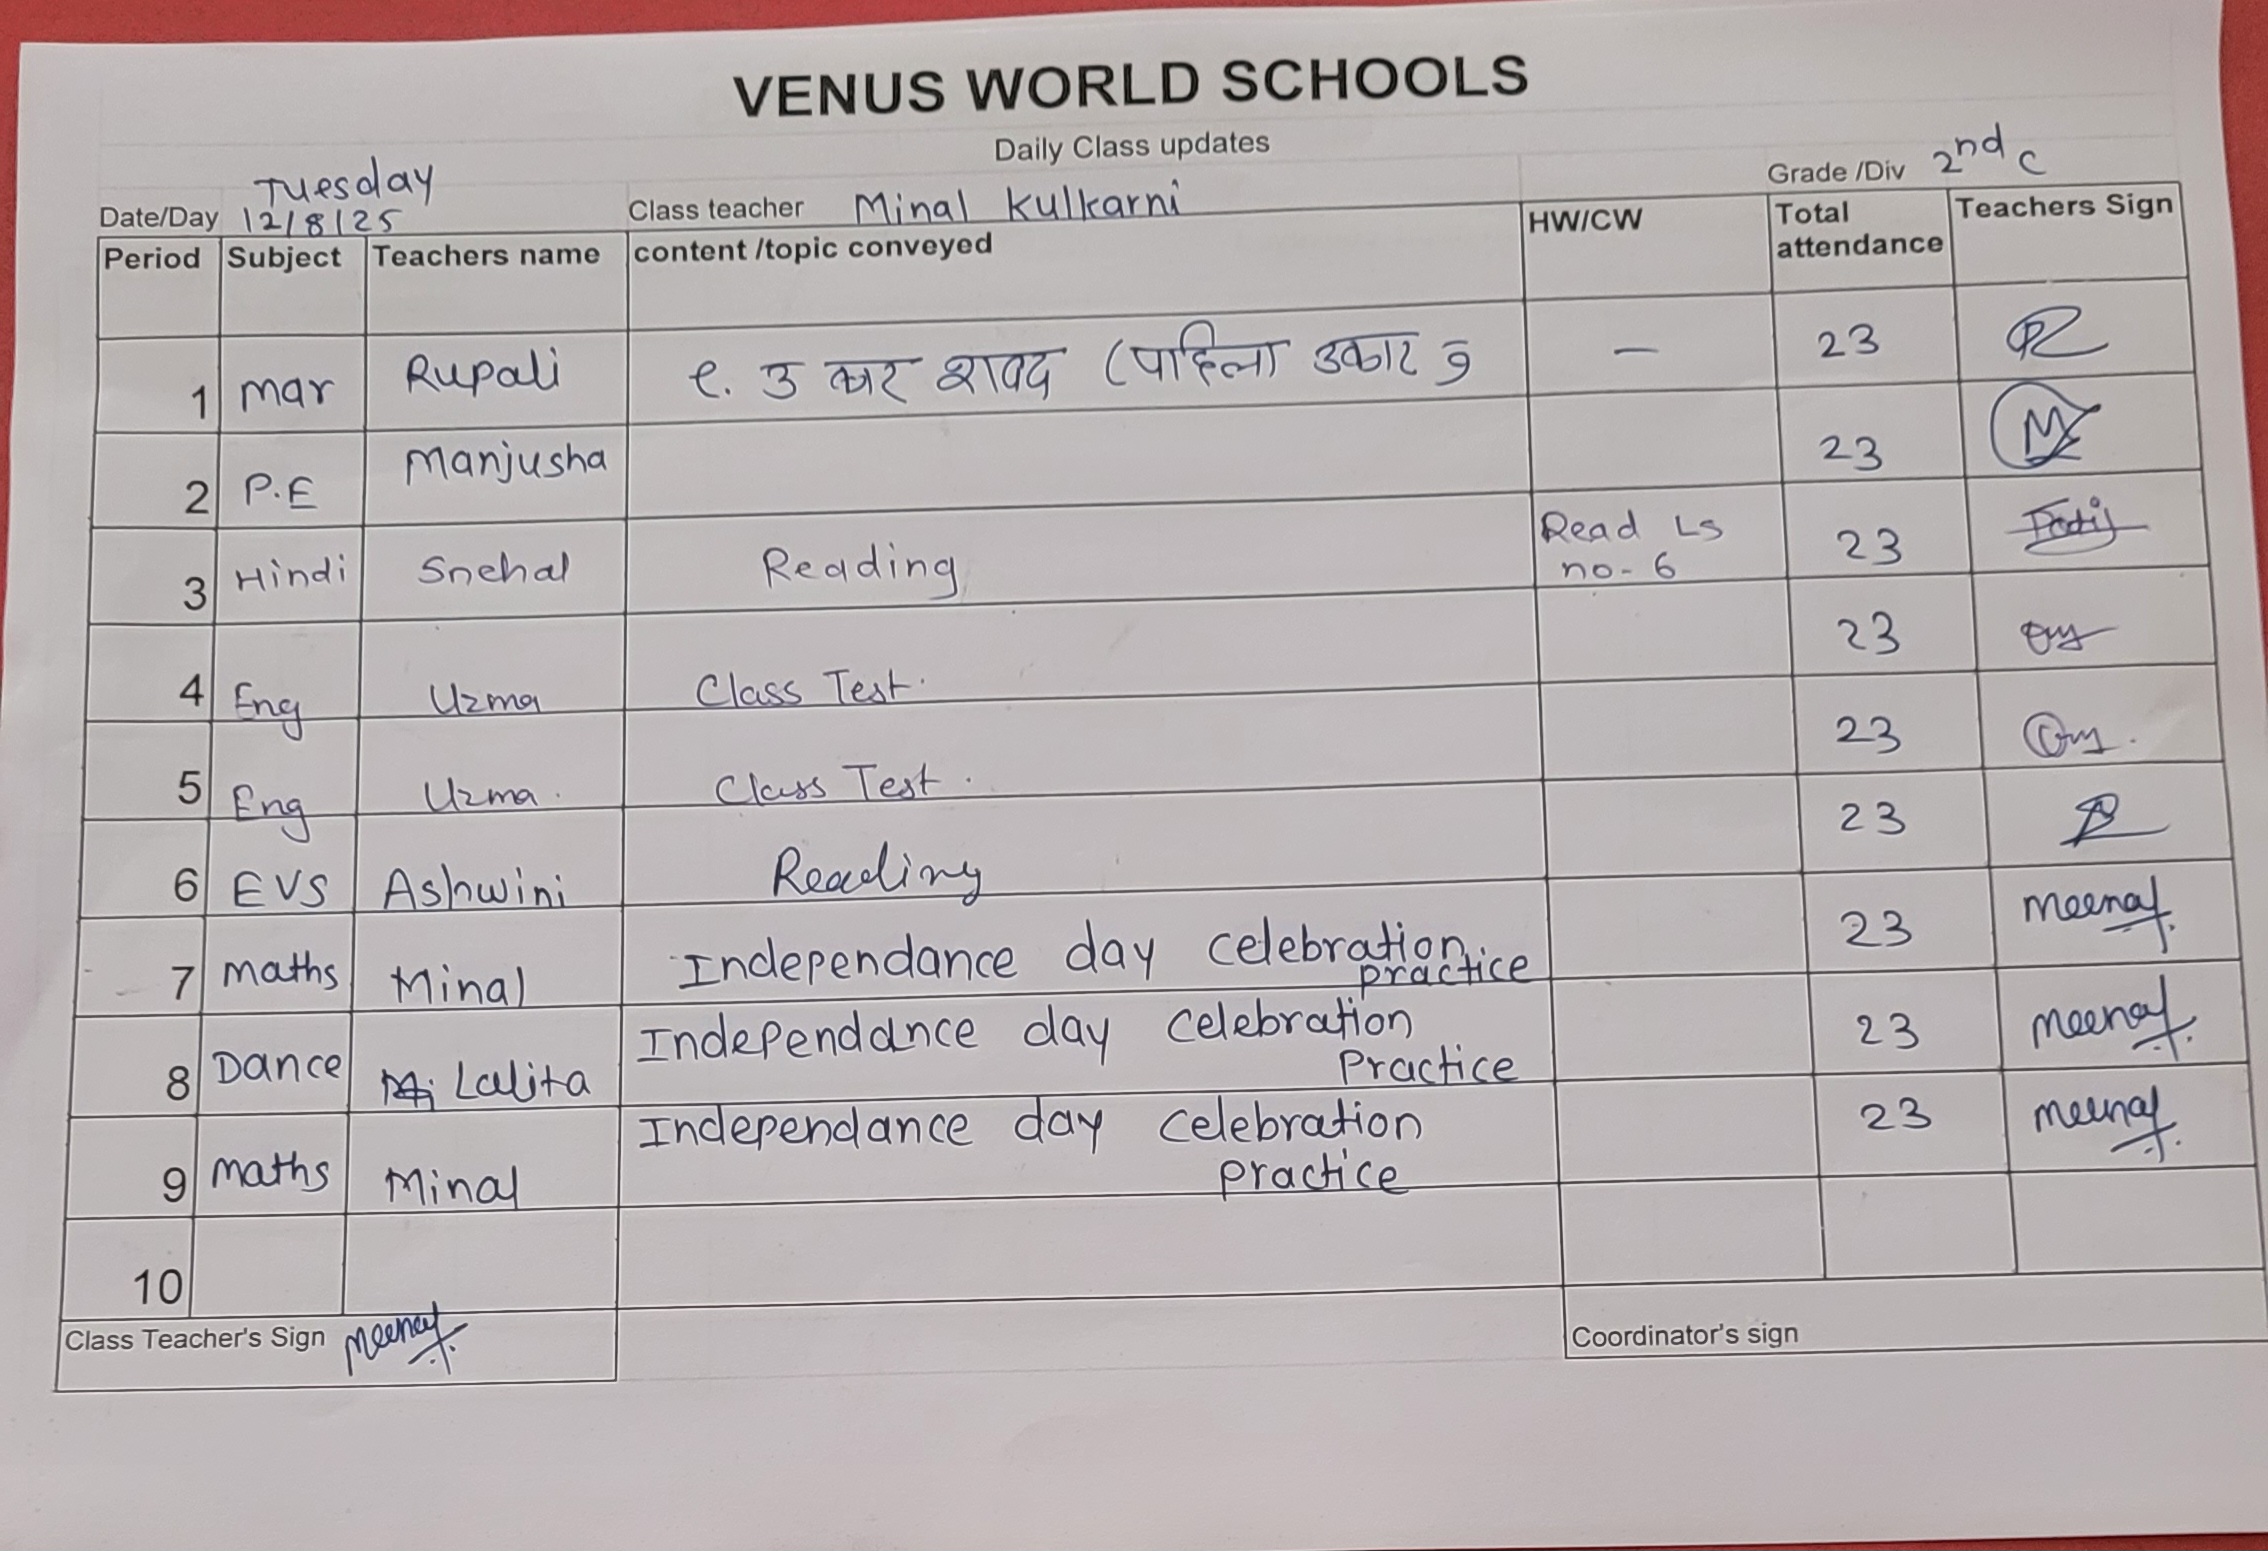 VENUS WORLD SCHOOLS
Daily Class updates
Date/Day Tuesday 12/8/25 Class teacher Minal Kulkarni Grade /Div 2nd C
Period Subject Teachers name content /topic conveyed HW/CW Total attendance Teachers Sign
1 Mar Rupali १. उ कार शवद (पाहिला उकार ु — 23
2 P.E Manjusha 23
3 Hindi Snehal Reading Read Ls no- 6 23
4 Eng Uzma Class Test. 23
5 Eng Uzma. Class Test. 23
6 EVS Ashwini Reading 23
7 Maths Minal Independance day celebration practice 23
8 Dance Lalita Independance day celebration Practice 23
9 Maths Minal Independance day celebration practice 23
10
Class Teacher's Sign Coordinator's sign